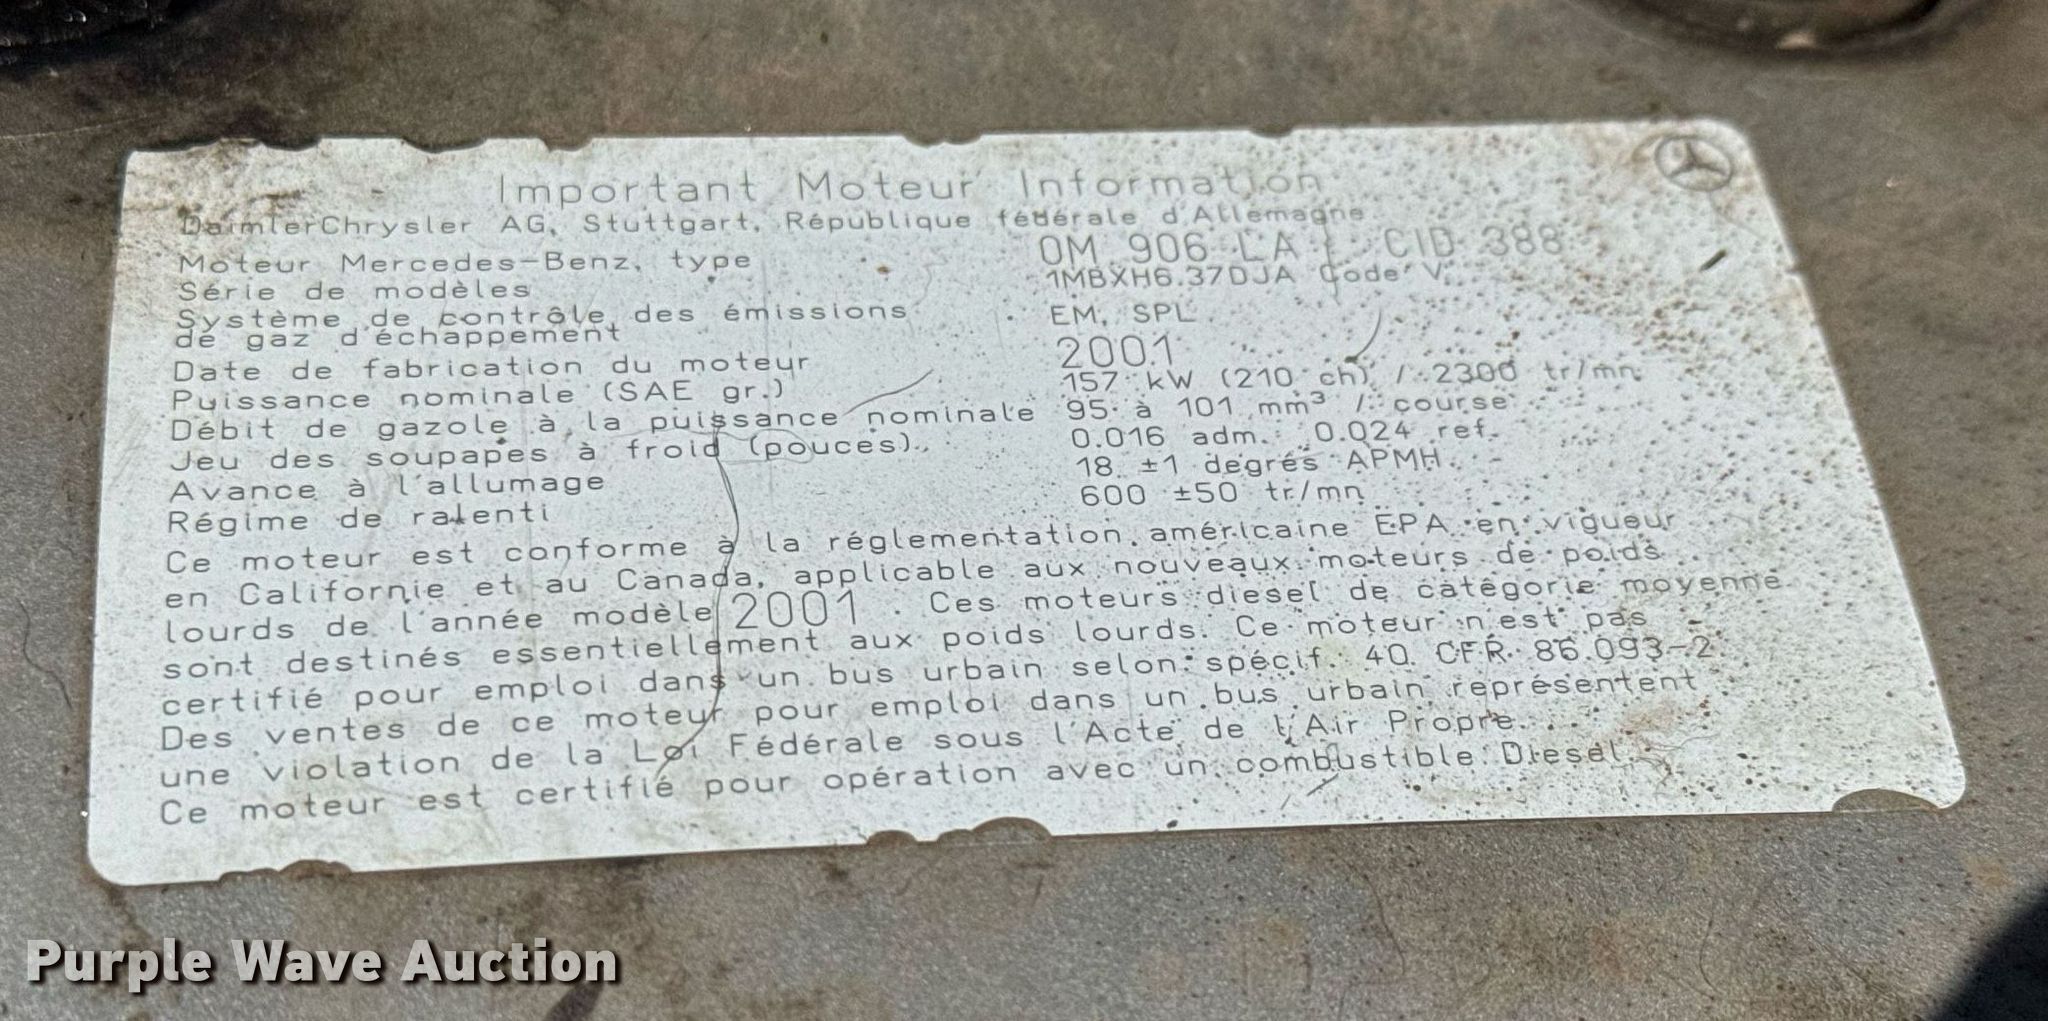 Important Moteur Information
DaimlerChrysler AG, Stuttgart, République fédérale d'Allemagne
Moteur Mercedes-Benz, type OM 906 LA CID 388
Série de modèles 1MBXH6.37DJA Code V
Système de contrôle des émissions
de gaz d'échappement EM, SPL
Date de fabrication du moteur 2001
Puissance nominale (SAE gr.) 157 kW (210 ch) / 2300 tr/mn
Débit de gazole à la puissance nominale 95 à 101 mm³ / course
Jeu des soupapes à froid (pouces) 0.016 adm. 0.024 ref.
Avance à l'allumage 18 ±1 degrés APMH
Régime de ralenti 600 ±50 tr/mn
Ce moteur est conforme à la réglementation américaine EPA en vigueur
en Californie et au Canada, applicable aux nouveaux moteurs de poids
lourds de l'année modèle 2001 . Ces moteurs diesel de catégorie moyenne
sont destinés essentiellement aux poids lourds. Ce moteur n'est pas
certifié pour emploi dans un bus urbain selon spécif. 40 CFR 86.093-2.
Des ventes de ce moteur pour emploi dans un bus urbain représentent
une violation de la Loi Fédérale sous l'Acte de l'Air Propre.
Ce moteur est certifié pour opération avec un combustible Diesel.
Purple Wave Auction